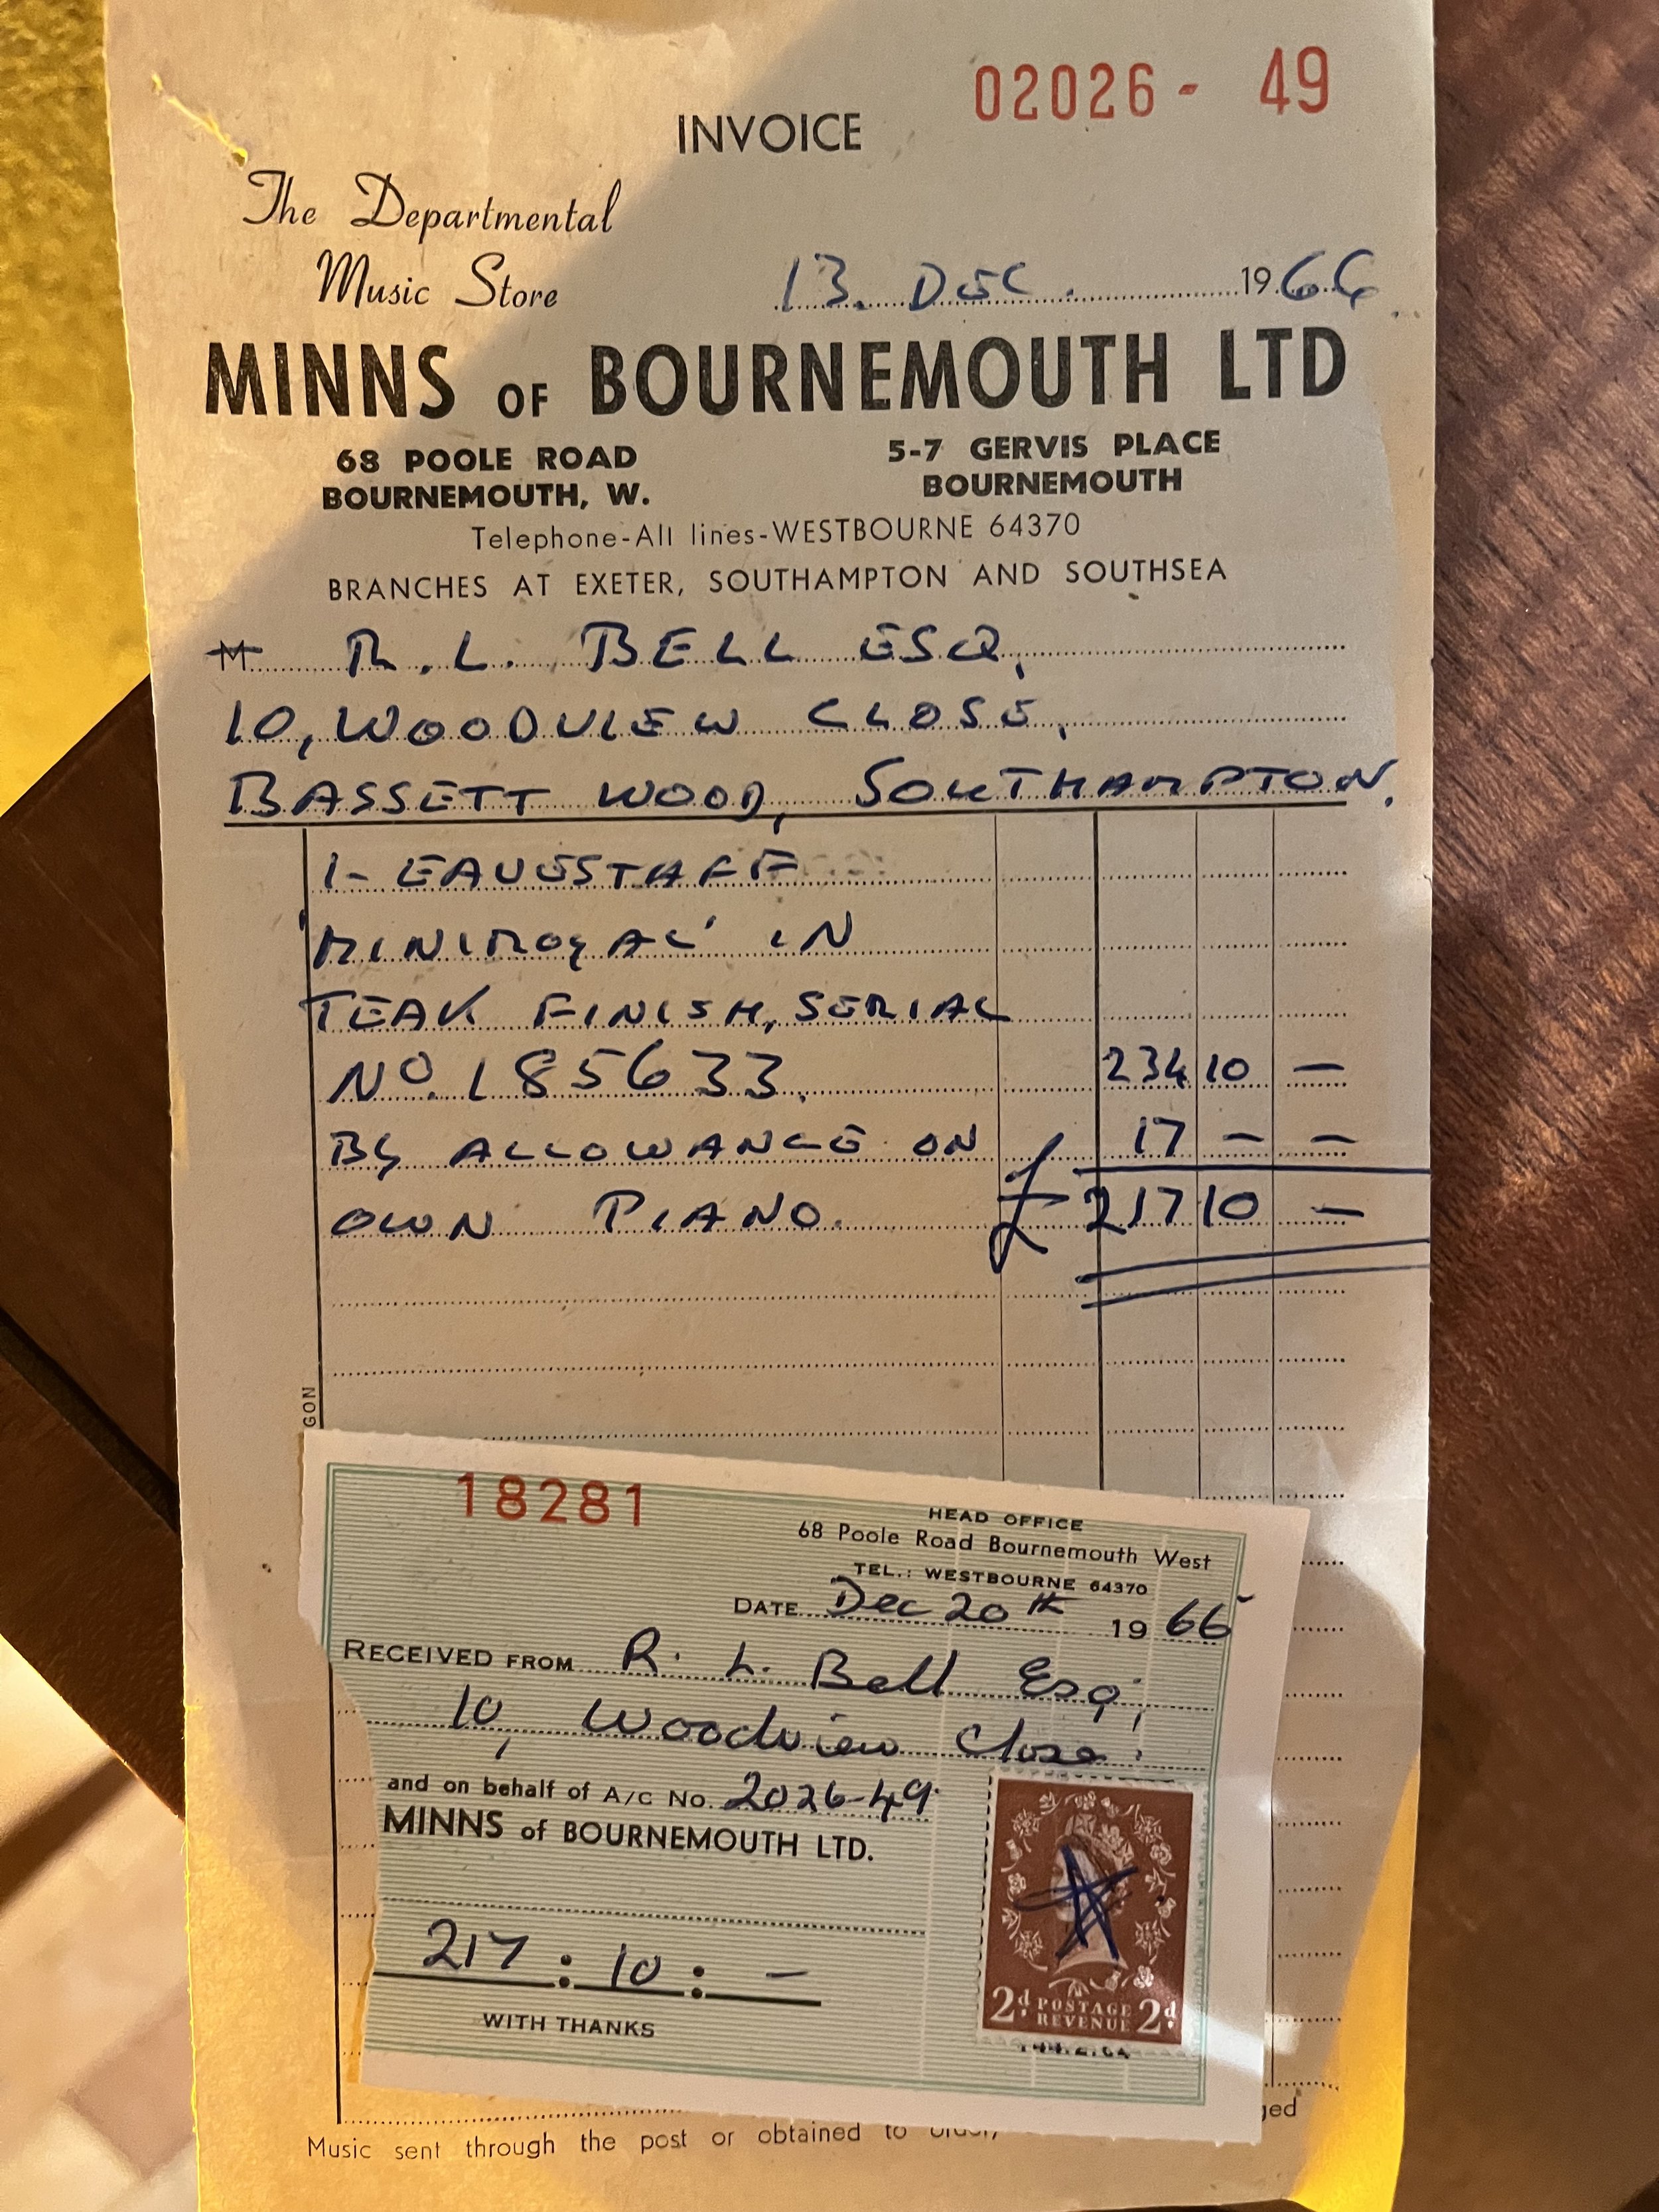 02026 - 49
INVOICE
The Departmental
Music Store
13. DEC. 1966
MINNS OF BOURNEMOUTH LTD
68 POOLE ROAD
BOURNEMOUTH, W.
5-7 GERVIS PLACE
BOURNEMOUTH
Telephone-All lines-WESTBOURNE 64370
BRANCHES AT EXETER, SOUTHAMPTON AND SOUTHSEA
M R. L. BELL ESQ,
10, WOODVIEW CLOSE,
BASSETT WOOD, SOUTHAMPTON.
1- EAVESTAFF
'MINIROYAL' IN
TEAK FINISH, SERIAL
No. 185633. 234 10 —
By ALLOWANCE ON 17 — —
OWN PIANO. £ 217 10 —
GON
18281
HEAD OFFICE
68 Poole Road Bournemouth West
TEL.: WESTBOURNE 64370
DATE Dec 20th 1966
RECEIVED FROM R. L. Bell Esq;
10, Woodview Close.
and on behalf of A/C No. 2026-49.
MINNS of BOURNEMOUTH LTD.
217 : 10 : —
WITH THANKS
2d POSTAGE REVENUE 2d
Music sent through the post or obtained to